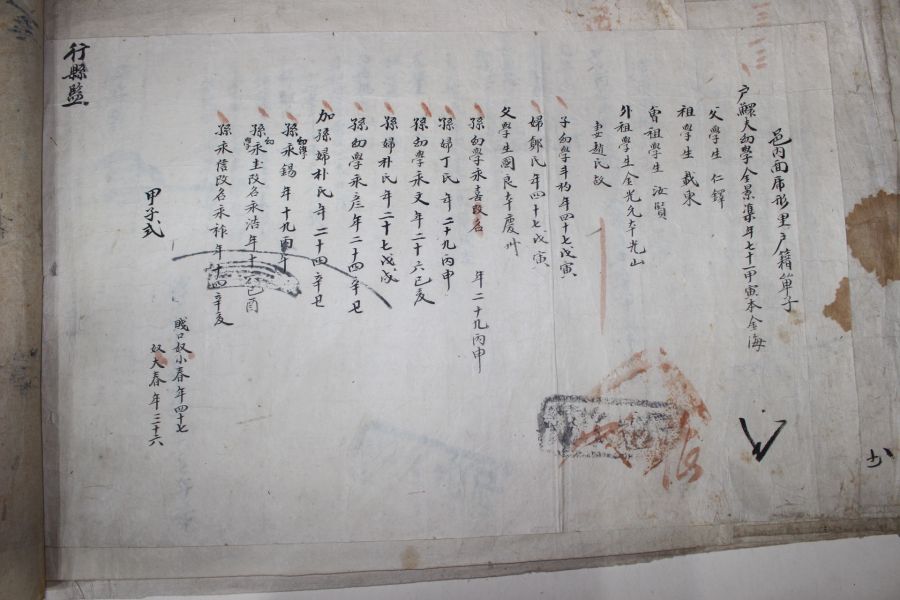 邑內面席形里戶籍單子
戶鰥夫幼學金景漢年七十一甲寅本金海
父學生 仁鐸
祖學生 載東
曾祖學生 汝賢
外祖學生金光允本光山
妻趙氏故
子幼學斗杓年四十七戊寅
婦鄭氏年四十七戊寅
父學生國良本慶州
孫幼學永喜改名 年二十九丙申
孫婦丁氏年二十九丙申
孫幼學永文年二十六己亥
孫婦朴氏年二十七戊戌
孫幼學永彦年二十四辛丑
加孫婦朴氏年二十四辛丑
孫幼學永錫年十九丙午
孫幼學永圭改名永浩年十 己酉
孫永信改名永祿年十四辛亥
賤口奴小春年四十七
奴大春年三十六
甲子式
行縣監